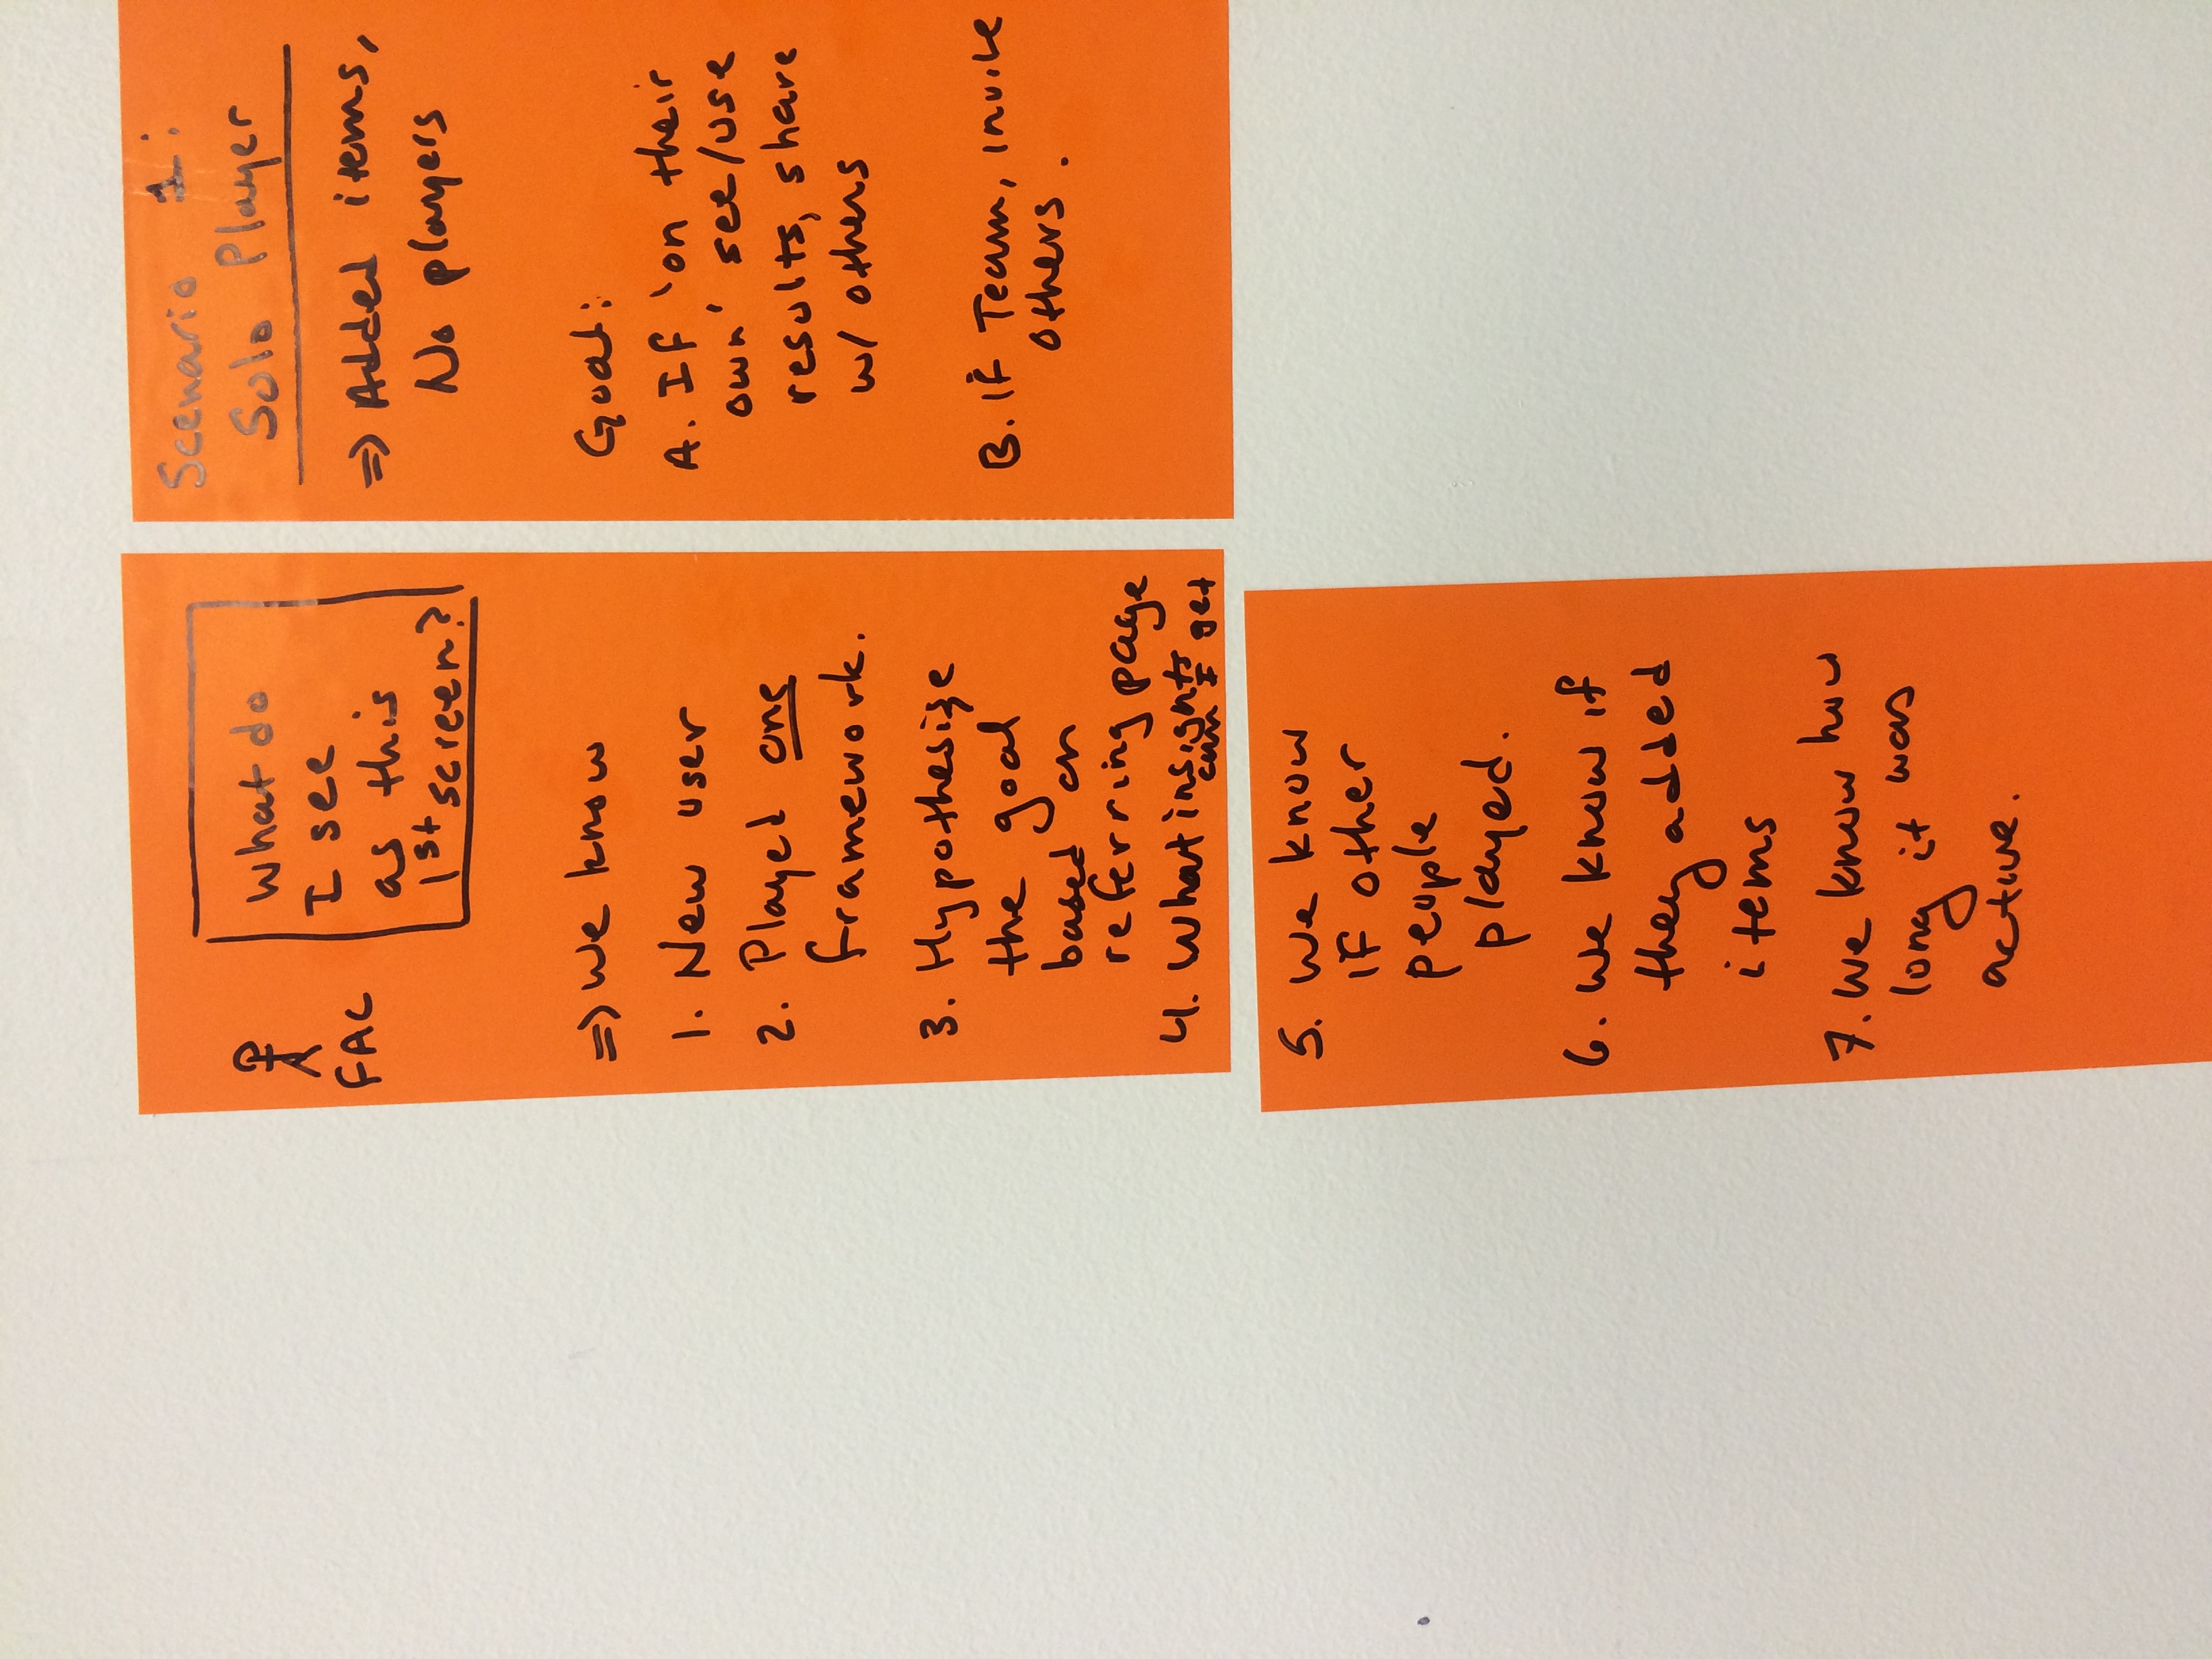 What do
I see
as this
1st screen?
FAC
=> We know
1. New user
2. Played one
framework.
3. Hypothesize
the goal
based on
referring page
4. What insights
can I get
5. We know
if other
people
played.
6. We know if
they added
items
7. We know how
long it was
active.
Scenario 1:
Solo Player
=> Added items,
No players
Goal:
A. If 'on their
own' see/use
results, share
w/ others
B. If Team, invite
others.